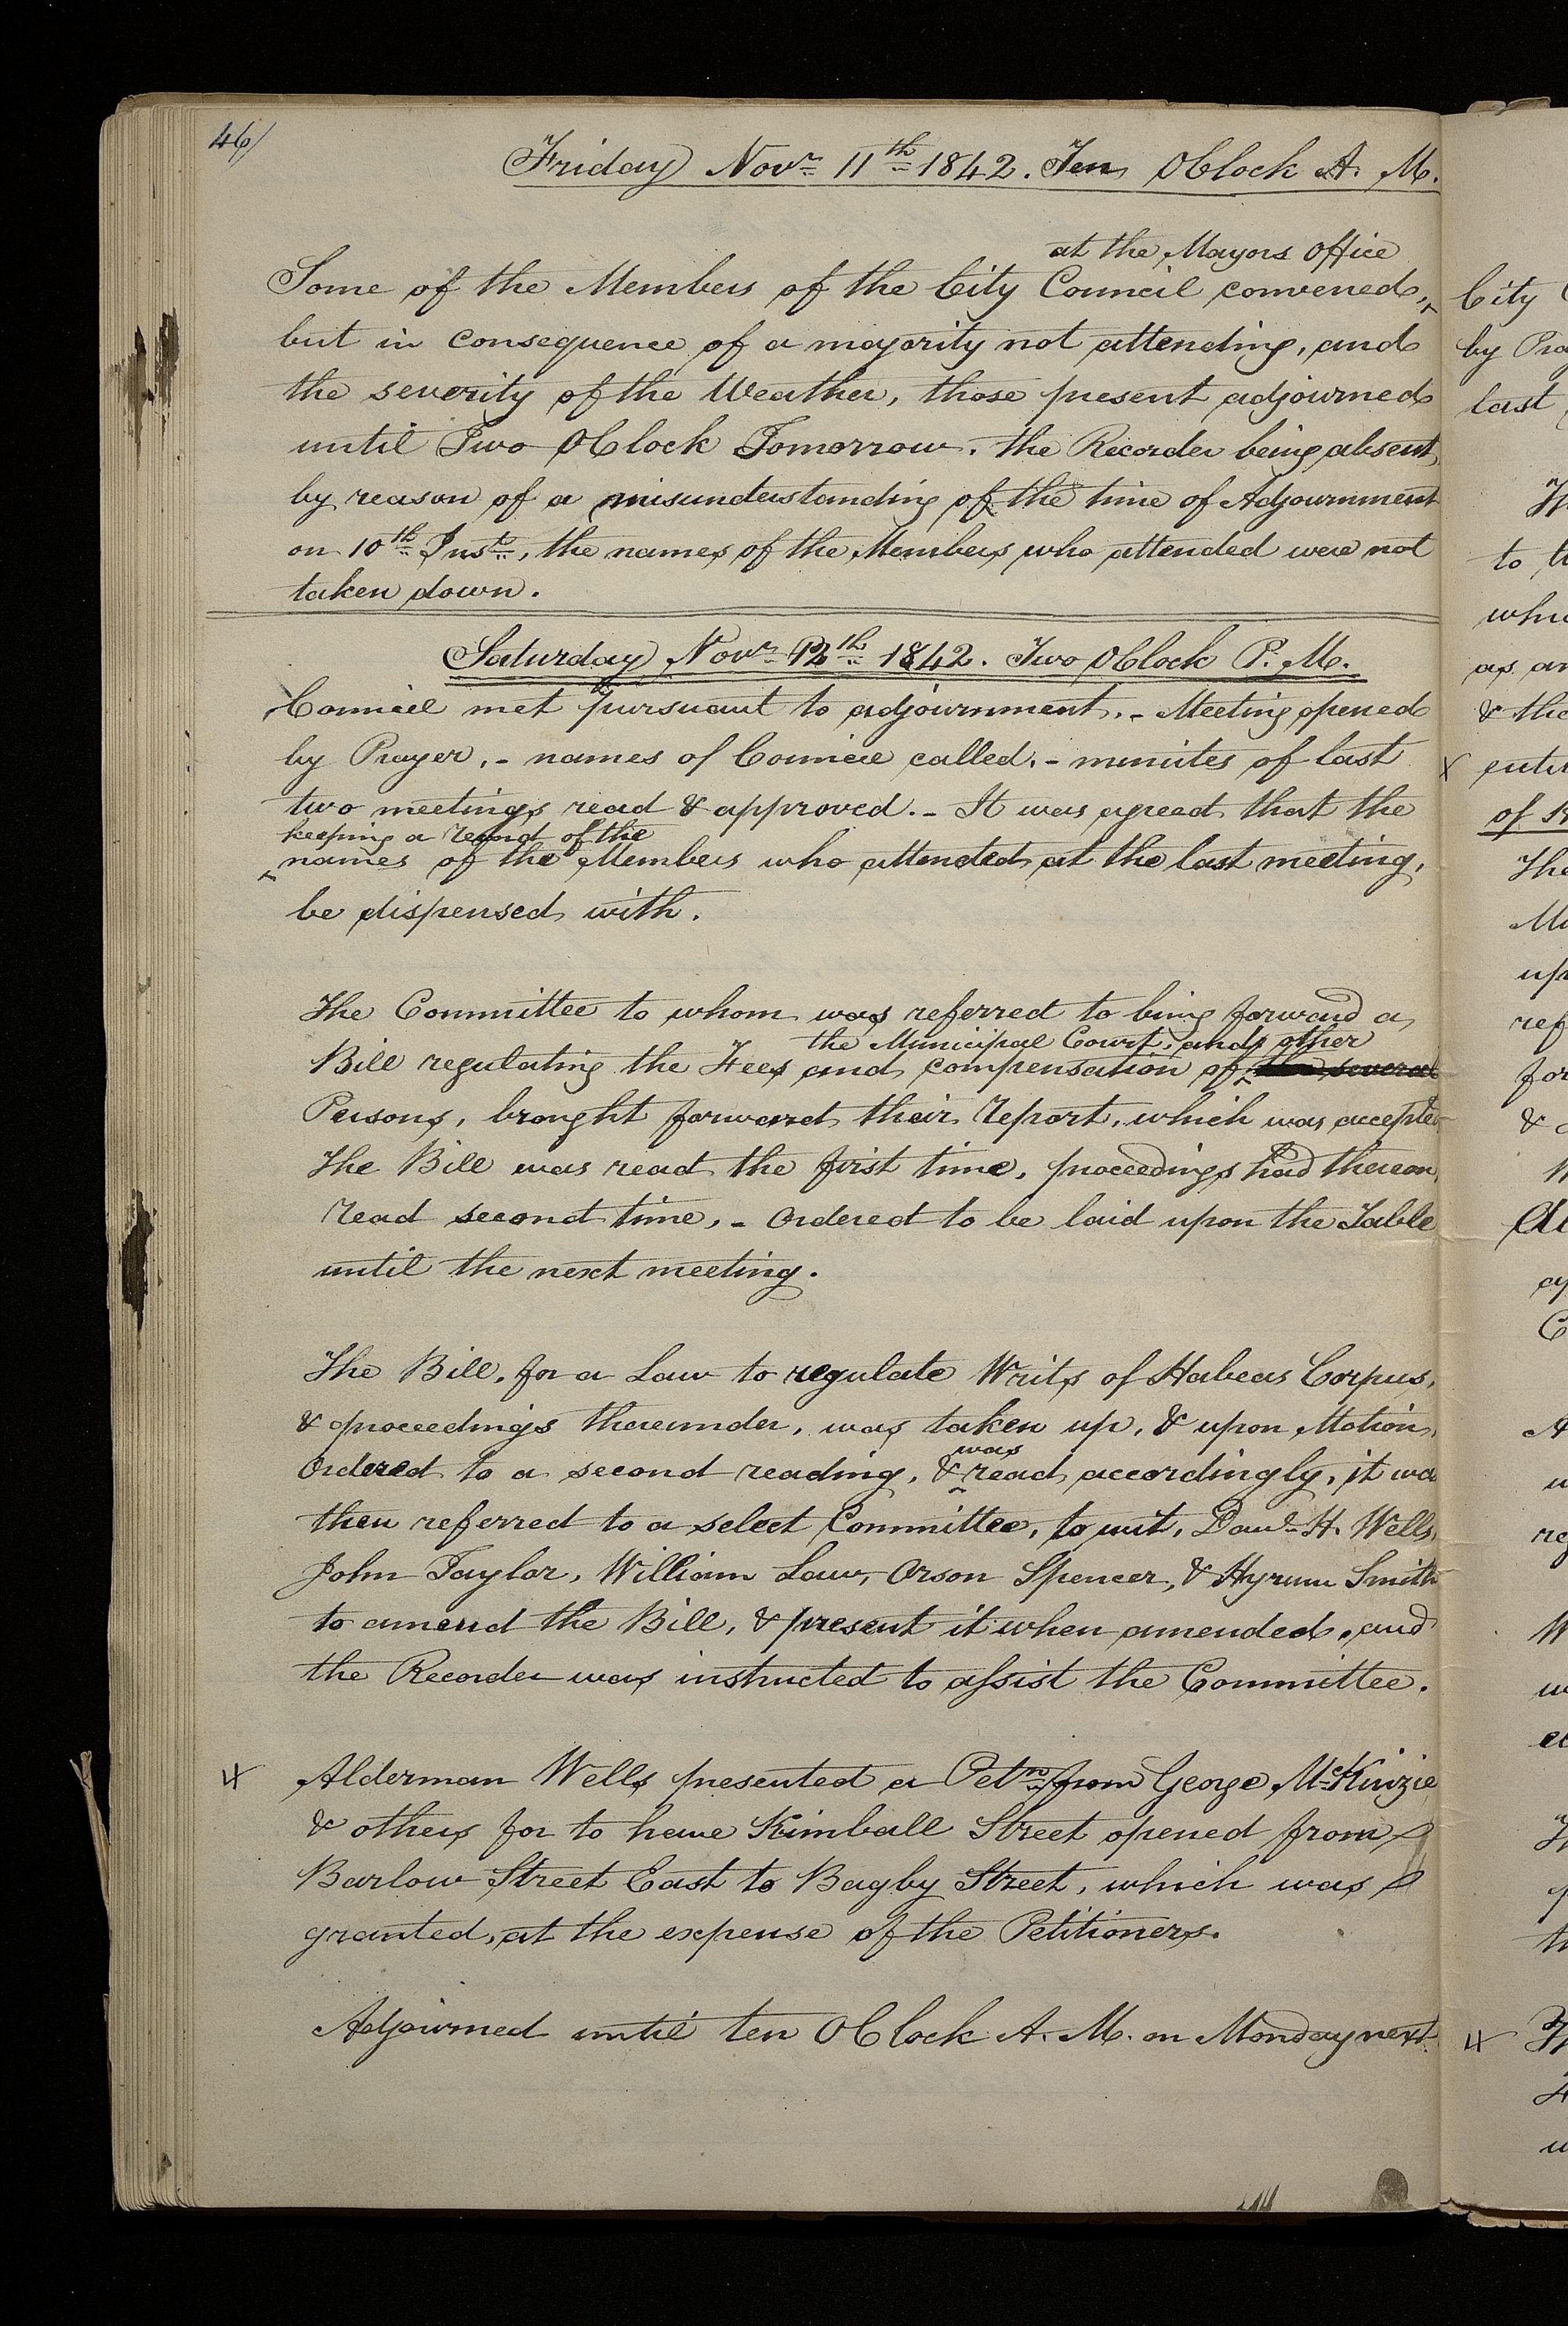 46/
Friday Novr 11th 1842. Ten OClock A. M.
at the Mayors office
Some of the Members of the City Council convened,
but in consequence of a majority not attending, and
the severity of the Weather, those present adjourned
until Two OClock Tomorrow. the Recorder being absent,
by reason of a misunderstanding of the time of Adjournment
on 10th Inst., the names of the Members who attended were not
taken down.
Saturday Novr 12th 1842. Two OClock P. M.
Council met pursuant to adjournment. - Meeting opened
by Prayer. - names of Council called. - minutes of last
two meetings read & approved. - It was agreed that the
keeping a record of the
names of the Members who attended at the last meeting,
be dispensed with.
The Committee to whom was referred to bring forward a
the Municipal Court, and other
Bill regulating the Fees and compensation of the several
Persons, brought forward their report, which was accepted
The Bill was read the first time, proceedings had thereon,
read second time, - ordered to be laid upon the Table
until the next meeting.
The Bill, for a Law to regulate Writs of Habeas Corpus,
& proceedings thereunder, was taken up, & upon Motion,
was
Ordered to a second reading, & read accordingly, it wa
then referred to a select Committee, to wit, Danl H. Wells,
John Taylor, William Law, Orson Spencer, & Hyrum Smith
to amend the Bill, & present it when amended. and
the Recorder was instructed to assist the Committee.
Alderman Wells presented a Petn from George McKinzie
& others for to have Kimball Street opened from
Barlow Street East to Bagby Street, which was
granted, at the expense of the Petitioners.
Adjourned until ten OClock A. M. on Monday next.
City
by Pra
last
to th
whic
as an
& the
enti
of H
The
Mu
up
ref
for
&